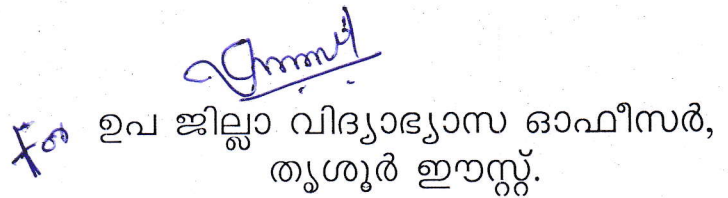 For ഉപ ജില്ലാ വിദ്യാഭ്യാസ ഓഫീസർ,
തൃശൂർ ഈസ്റ്റ്.